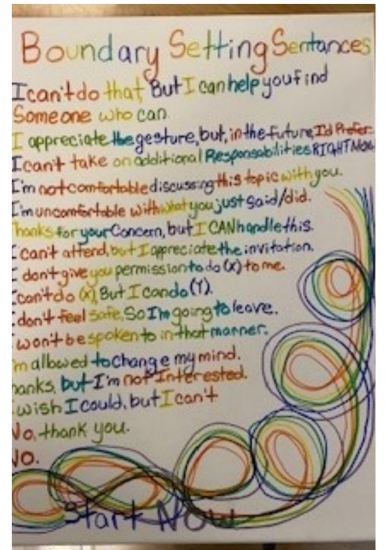 Boundary Setting Sentances
I can't do that, But I can help you find
Someone who can.
I appreciate the gesture, but, in the future, I'd Prefer.
I can't take on additional Responsabilities RIGHT NOW.
I'm not comfortable discussing this topic with you.
I'm uncomfortable with what you just said/did.
hanks for your Concern, but I CAN handle this.
I can't attend, but I appreciate the invitation.
I don't give you permission to do (x) to me.
I can't do (x), But I can do (Y).
I don't feel safe, So I'm going to leave.
I won't be spoken to in that manner.
'm allowed to Change my mind.
hanks, but I'm not Interested.
wish I could, but I can't
No, thank you.
NO.
Start NOW